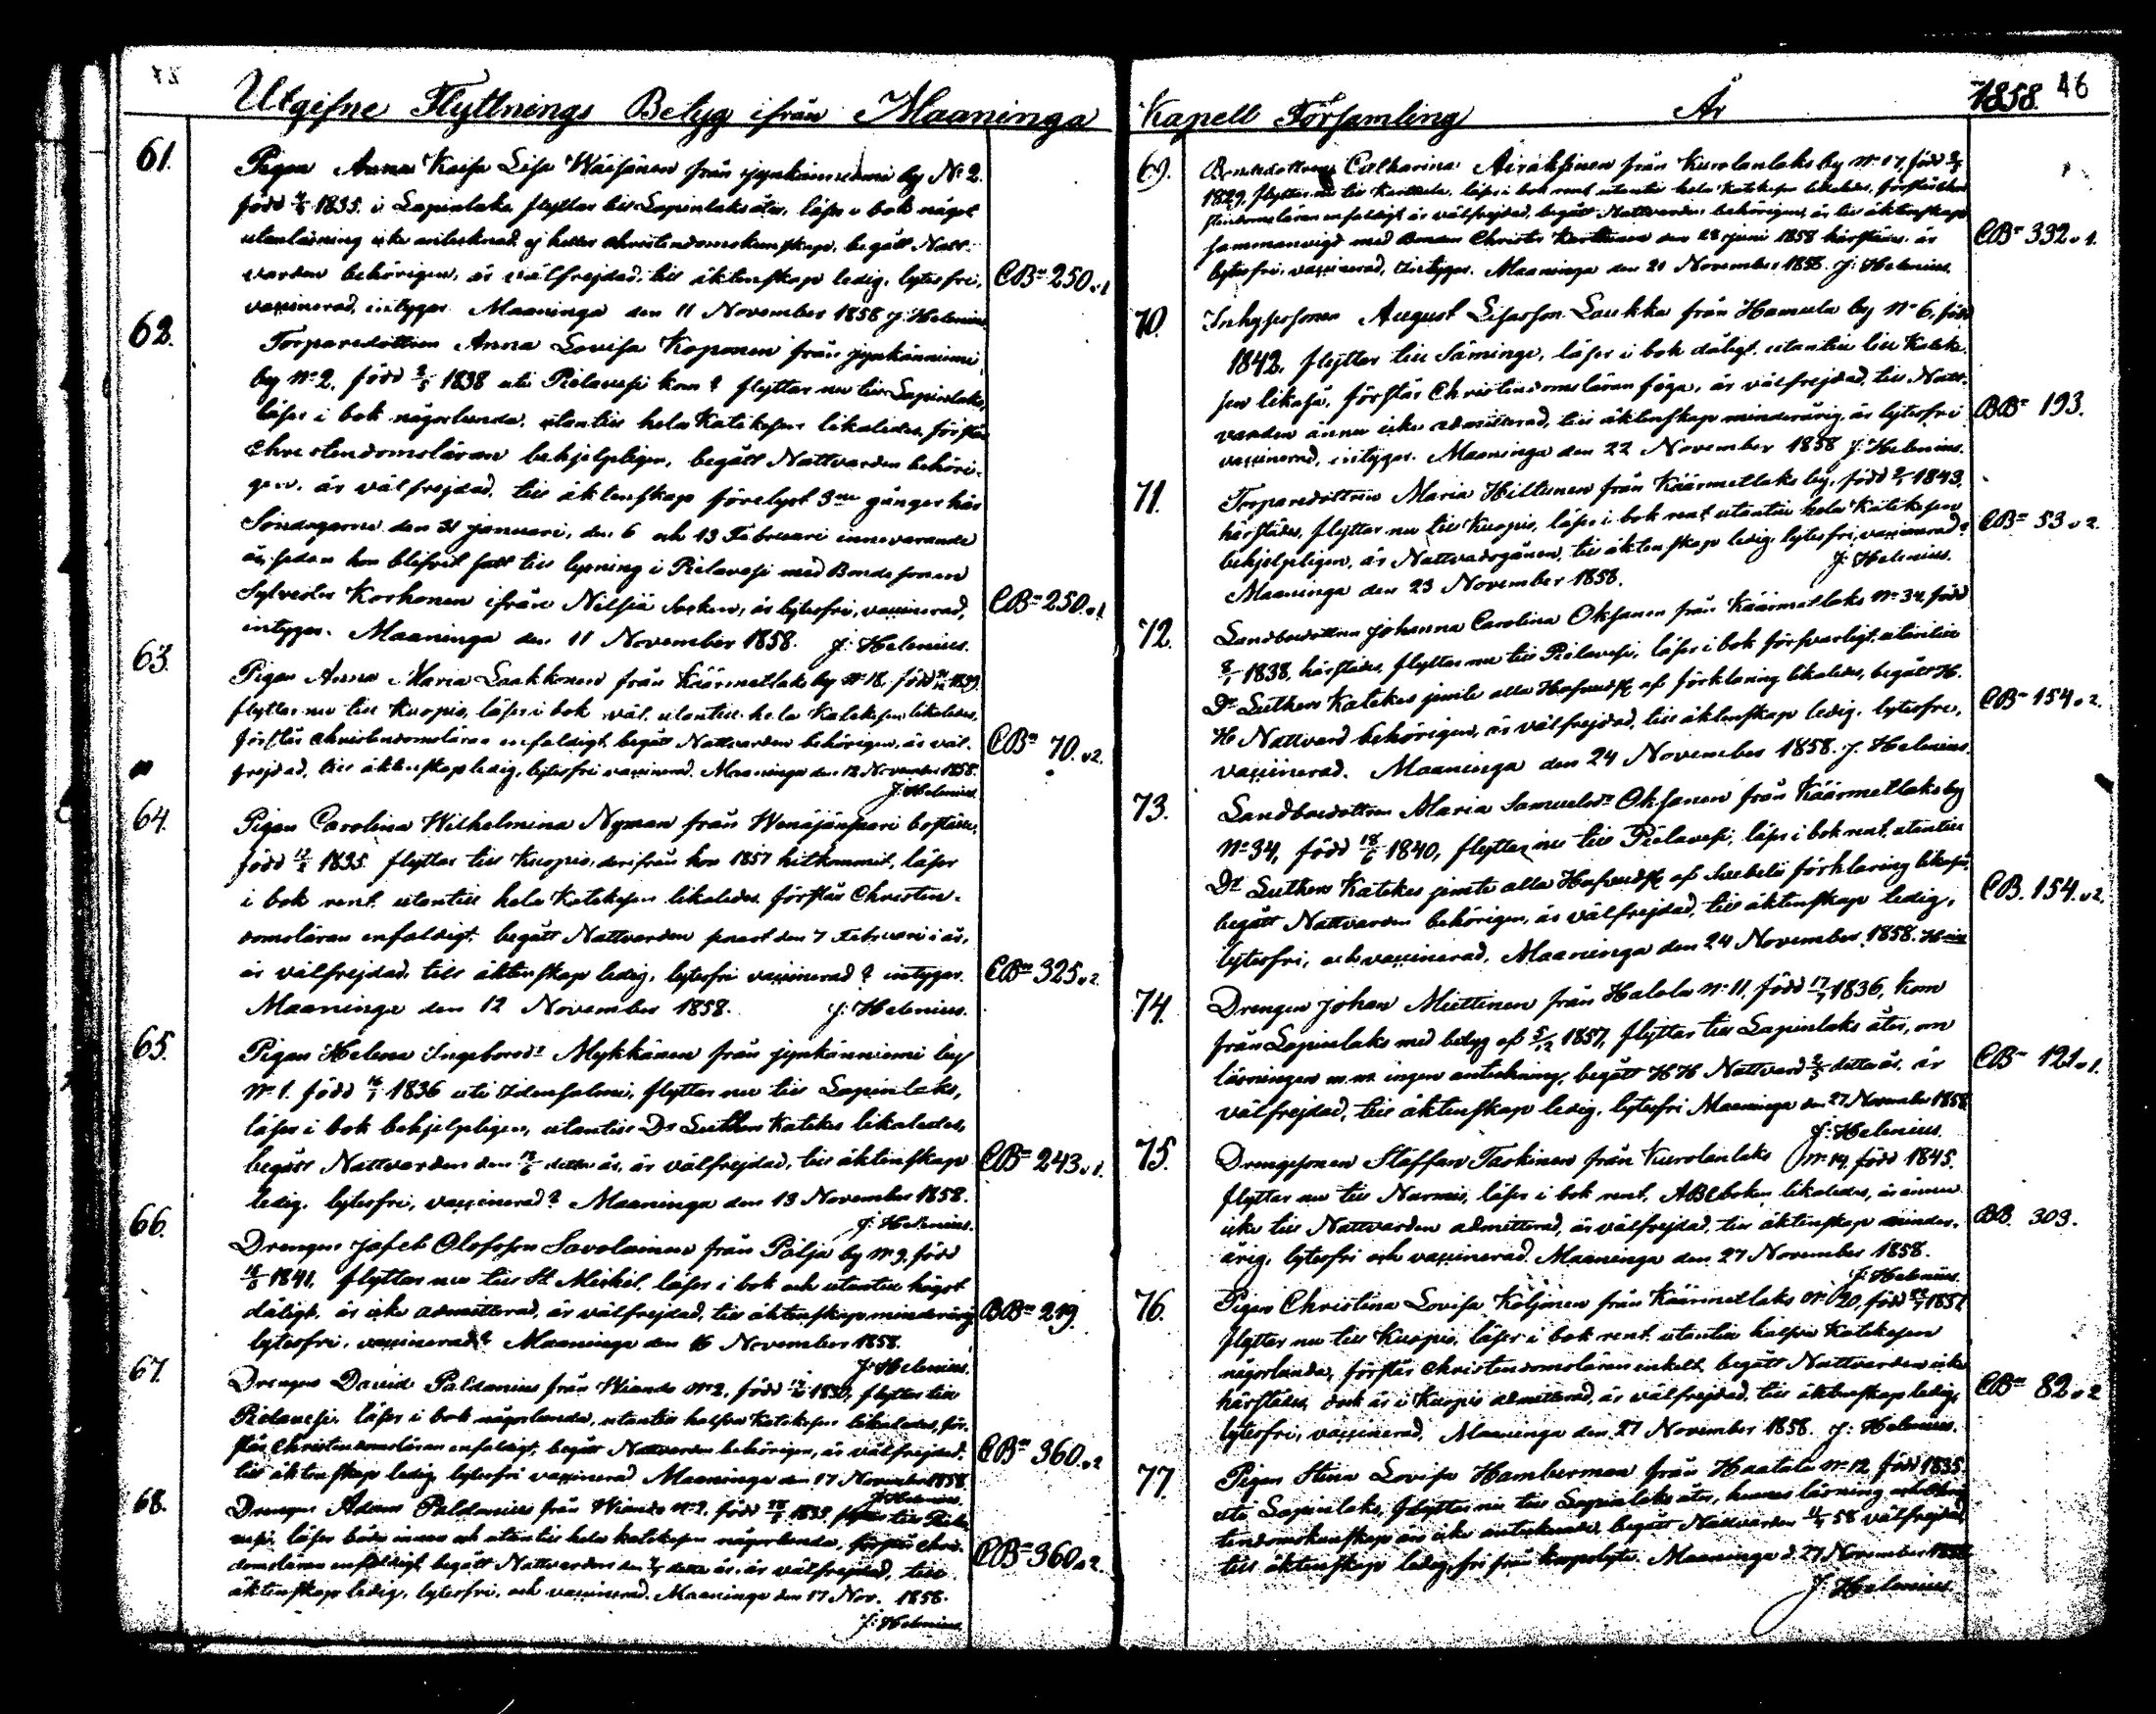 Utgifne Flyttnings Belyg ifrån Maaninga
61.
Pigan Anna Kaisa Lisa Wäisänen från Jynkänniemi by N:o 2.
född 1835 i Lapinlaks, flyttar till Lapinlaks åter, läser i bok något
utanläsning icke antecknad, ej heller christendomskunskap, begått Natt-
varden behörigen, är välfrejdad, till äktenskap ledig, lytesfri,
vaxinerad, intygar. Maaninga den 11 November 1858 J: Helenius.
CB:n 250 v 1
62.
Torparedottren Anna Lovisa Koponen från Jynkänniemi
by N:o 2, född 1838 uti Pielavesi kom? flyttar nu till Lapinlaks,
läser i bok någorlunda, utantill hela Katekesen likaledes, förstår
Christendomsläran behjelpligen, begått Nattvarden behöri-
gen, är välfrejdad, till äktenskap förelyst 3:ne gånger här
Söndagarne den 31 Januari, den 6 och 13 Februari innevarande
år, sedan hon blifvit satt till lysning i Pielavesi med Bondesonen
Sylvester Korhonen ifrån Nilsiä Socken, är lytesfri, vaxinerad,
intygar. Maaninga den 11 November 1858. J: Helenius.
CB:n 250 v 1
63.
Pigan Anna Maria Laakkonen från Käärmetlaks by N:o 18, född 1839
flyttar nu till Kuopio, läser i bok väl, utantill hela Katekesen likaledes,
förstår Christendomsläran enfaldigt, begått Nattvarden behörigen, är väl-
frejdad, till äktenskap ledig, lytesfri vaxinerad. Maaninga den 12 November 1858.
J: Helenius.
CB:n 70. v 2.
64.
Pigan Carolina Wilhelmina Nyman från Wenäjänsaari boställe,
född 1835 flyttar till Kuopio, derifrån hon 1857 hitkommit, läser
i bok rent, utantill hela Katekesen likaledes, förstår Christen-
domsläran enfaldigt, begått Nattvarden senast den 7 Februari i år,
är välfrejdad, till äktenskap ledig, lytesfri vaxinerad? intygar.
Maaninga den 12 November 1858. J: Helenius.
CB:n 325 v 2
65.
Pigan Helena Ingeborsd:r Mykkänen från Jynkänniemi by
N:o 1. född 1836 uti Idensalmi, flyttar nu till Lapinlaks,
läser i bok behjelpligen, utantill D:r Luthers Katekes likaledes,
begått Nattvarden den detta år, är välfrejdad, till äktenskap
ledig, lytesfri, vaxinerad? Maaninga den 13 November 1858.
J: Helenius.
CB:n 243 v 1.
66.
Drengen Jafet Olofsson Savolainen från Pöljä by N:o 9, född
1841, flyttar nu till S:t Mickel, läser i bok och utantill högst
dåligt, är icke admitterad, är välfrejdad, till äktenskap minderårig
lytesfri, vaxinerad? Maaninga den 16 November 1858.
J: Helenius.
BB:n 219.
67.
Drengen David Paldanius från Wiando N:o 2, född flyttar till
Pielavesi, läser i bok någorlunda, utantill halfva Katekesen likaledes, för-
står Christendomsläran enfaldigt, begått Nattvarden behörigen, är välfrejdad,
till äktenskap ledig, lytesfri vaxinerad Maaninga den 17 November 1858.
J: Helenius.
CB:n 360. v 2
68.
Drengen Adam Paldanius från Wiando N:o 2, född 1835, flyttar till Piela-
vesi, läser både innan och utantill hela katekesen någorlunda, förstår Chris-
domsläran enfaldigt, begått Nattvarden den detta år, är välfrejdad, till
äktenskap ledig, lytesfri, och vaxinerad. Maaninga den 17 Nov. 1858.
J: Helenius.
CB:n 360 v 2.
Kapell Församling År 1858. 46
69.
Bondedottren Catharina Airaksinen från Kurolanlaks by N:o 17, född
1829, flyttar nu till läser i bok rent, utantill hela Katekesen likaledes, förstår Chri-
stendomsläran enfaldigt är välfrejdad, begått Nattvarden behörigen, är till äktenskap
sammanvigd med Bonden Christer den 28 Juni 1858 härstädes, är
lytesfri, vaxinerad, intygar. Maaninga den 20 November 1858. J: Helenius.
CB:n 332 v 1.
70.
Inhysessonen August Lukka från Hamula by N:o 6, född
1842, flyttar till Säminge, läser i bok dåligt, utantill lill Kateke-
sen likaså, förstår Christendomsläran föga, är välfrejdad, till Natt-
varden ännu icke admitterad, till äktenskap minderårig, är lytesfri
vaxinerad, intygar. Maaninga den 22 November 1858 J: Helenius.
BB:n 193.
71.
Torparedottren Maria Hiltunen från Käärmetlaks by, född 1843,
härstädes, flyttar nu till Kuopio, läser i bok rent utantill hela Katekesen
behjelpligen, är Nattvardgången, till äktenskap ledig, lytesfri, vaxinerad?
Maaninga den 23 November 1858. J: Helenius.
CB:n 53 v 2.
72.
Landbodottren Johanna Carolina Oksanen från Käärmetlaks N:o 34, född
1838, härstädes, flyttar nu till Pielavesi, läser i bok försvarligt, utantill
D:r Luthers Katekes jemte alla Hufvudst. af förklaring likaledes, begått H.
H. Nattvard behörigen, är välfrejdad, till äktenskap ledig, lytesfri,
vaxinerad. Maaninga den 24 November 1858. J. Helenius.
CB:n 154 v 2.
73.
Landbodottren Maria Samuelsd:r Oksanen från Käärmetlaks by
N:o 34, född 18/6 1840, flyttar nu till Pielavesi, läser i bok rent, utantill
D:r Luthers Katekes jemte alla Hufvudst. af Svebelii förklaring likaså,
begått Nattvarden behörigen, är välfrejdad, till äktenskap ledig,
lytesfri, och vaxinerad, Maaninga den 24 November 1858.
CB. 154. v 2.
74.
Drengen Johan Miettinen från Halola N:o 11, född 1836, kom
från Lapinlaks med belyg af 5/12 1857, flyttar till Lapinlaks åter, om
läsningen m.m. ingen anteckning, begått H H Nattvard detta år, är
välfrejdad, till äktenskap ledig, lytesfri Maaninga den 27 November 1858
J: Helenius.
CB:n 121 v 1.
75.
Drengsonen Staffan Taskinen från Kurolanlaks N:o 14, född 1845.
flyttar nu till Nurmis, läser i bok rent, ABCboken likaledes, är ännu
icke till Nattvarden admitterad, är välfrejdad, till äktenskap minder-
årig, lytesfri och vaxinerad. Maaninga den 27 November 1858.
J: Helenius.
BB. 303.
76.
Pigan Christina Lovisa Koljonen från Käärmetlaks N:o 20, född
flyttar nu till Kuopio, läser i bok rent, utantill halfva Katekesen
någorlunda, förstår Christendomsläran enkelt, begått Nattvarden icke
härstädes, dock är i Kuopio admitterad, är välfrejdad, till äktenskap ledig,
lytesfri, vaxinerad, Maaninga den 27 November 1858. J: Helenius.
CB:n 82 v 2
77.
Pigan Stina Lovisa Hamberman från Haatala N:o 12 född 1835
uti Lapinlaks, flyttar nu till Lapinlaks åter, hennes läsning och Chris-
tendomskunskap är icke antecknade, begått Nattvarden 58 välfrejdad,
till äktenskap ledig, fri från kroppslyte. Maaninga d. 27 November 1858
J: Helenius.